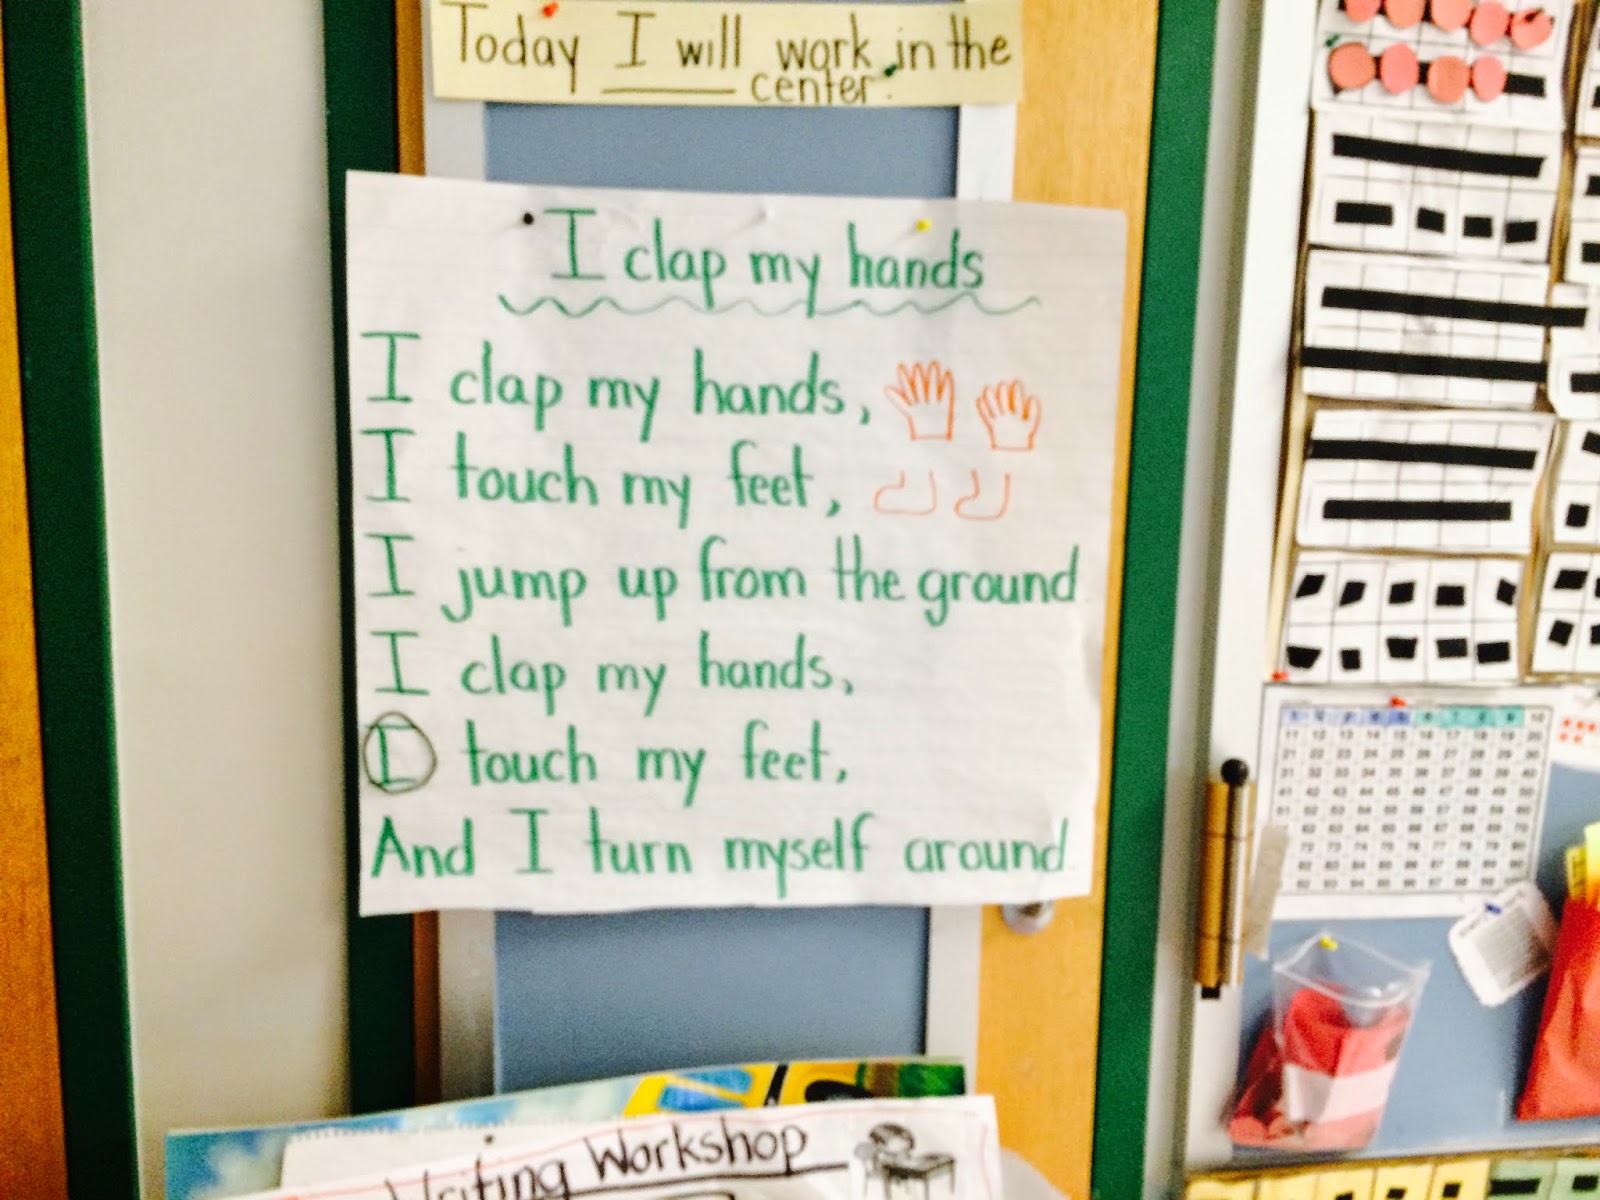 Today I will work in the
____ center.
I clap my hands
I clap my hands,
I touch my feet,
I jump up from the ground
I clap my hands,
I touch my feet,
And I turn myself around
Writing Workshop